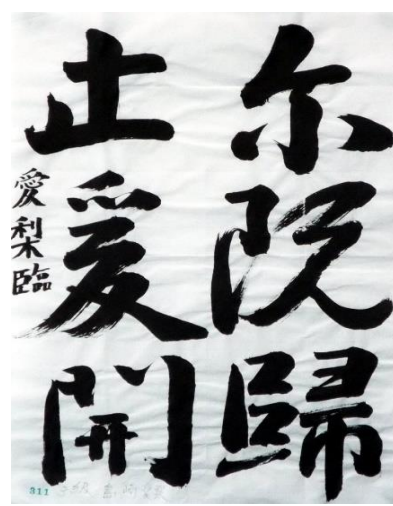 尓既歸
止爰開
愛梨臨
311